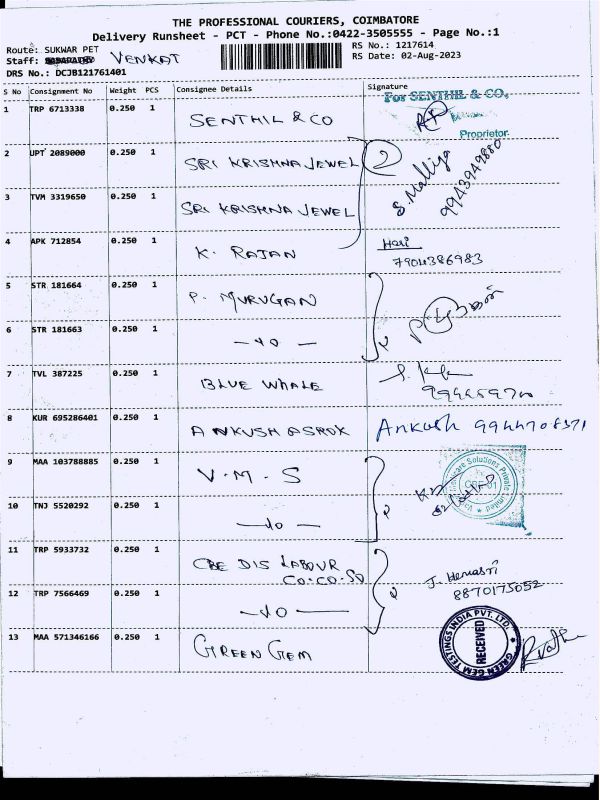 THE PROFESSIONAL COURIERS, COIMBATORE
Delivery Runsheet - PCT - Phone No.:0422-3505555 - Page No.:1
Route: SUKWAR PET
RS No.: 1217614
Staff: VENKAT
RS Date: 02-Aug-2023
DRS No.: DCJB121761401
S No Consignment No Weight PCS Consignee Details Signature
1 TRP 6713338 0.250 1 SENTHIL & CO For SENTHIL & CO,
Proprietor
2 UPT 2089000 0.250 1 SRI KRISHNA JEWEL 2
S. Malliga
9943949880
3 TVM 3319650 0.250 1 SRI KRISHNA JEWEL
4 APK 712854 0.250 1 K. RAJAN Hari
7904386983
5 STR 181664 0.250 1 P. MURUGAN 2
6 STR 181663 0.250 1 — do —
7 TVL 387225 0.250 1 BLUE WHALE
8 KUR 695286401 0.250 1 ANKUSH ASHOK Ankush 9944708371
9 MAA 103788885 0.250 1 V.M.S 2
10 TNJ 5520292 0.250 1 — do —
11 TRP 5933732 0.250 1 CBE DIS LABOUR
CO.CO.SO 2
J. Hemasri
8870175052
12 TRP 7566469 0.250 1 — do —
13 MAA 571346166 0.250 1 GREEN GEM
GREEN GEM TESTINGS INDIA PVT. LTD.
RECEIVED